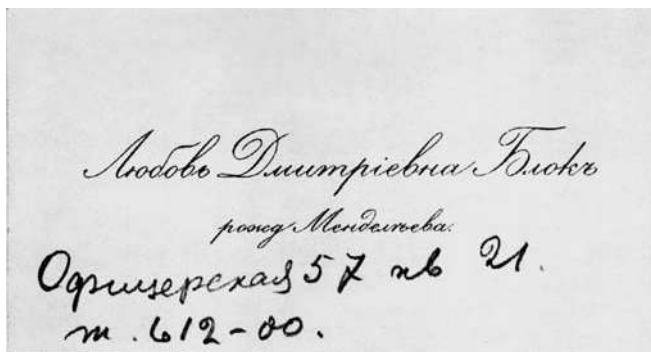 Любовь Дмитріевна Блокъ
рожд Менделѣева.
Офицерская 57 кв 21.
т. 612-00.